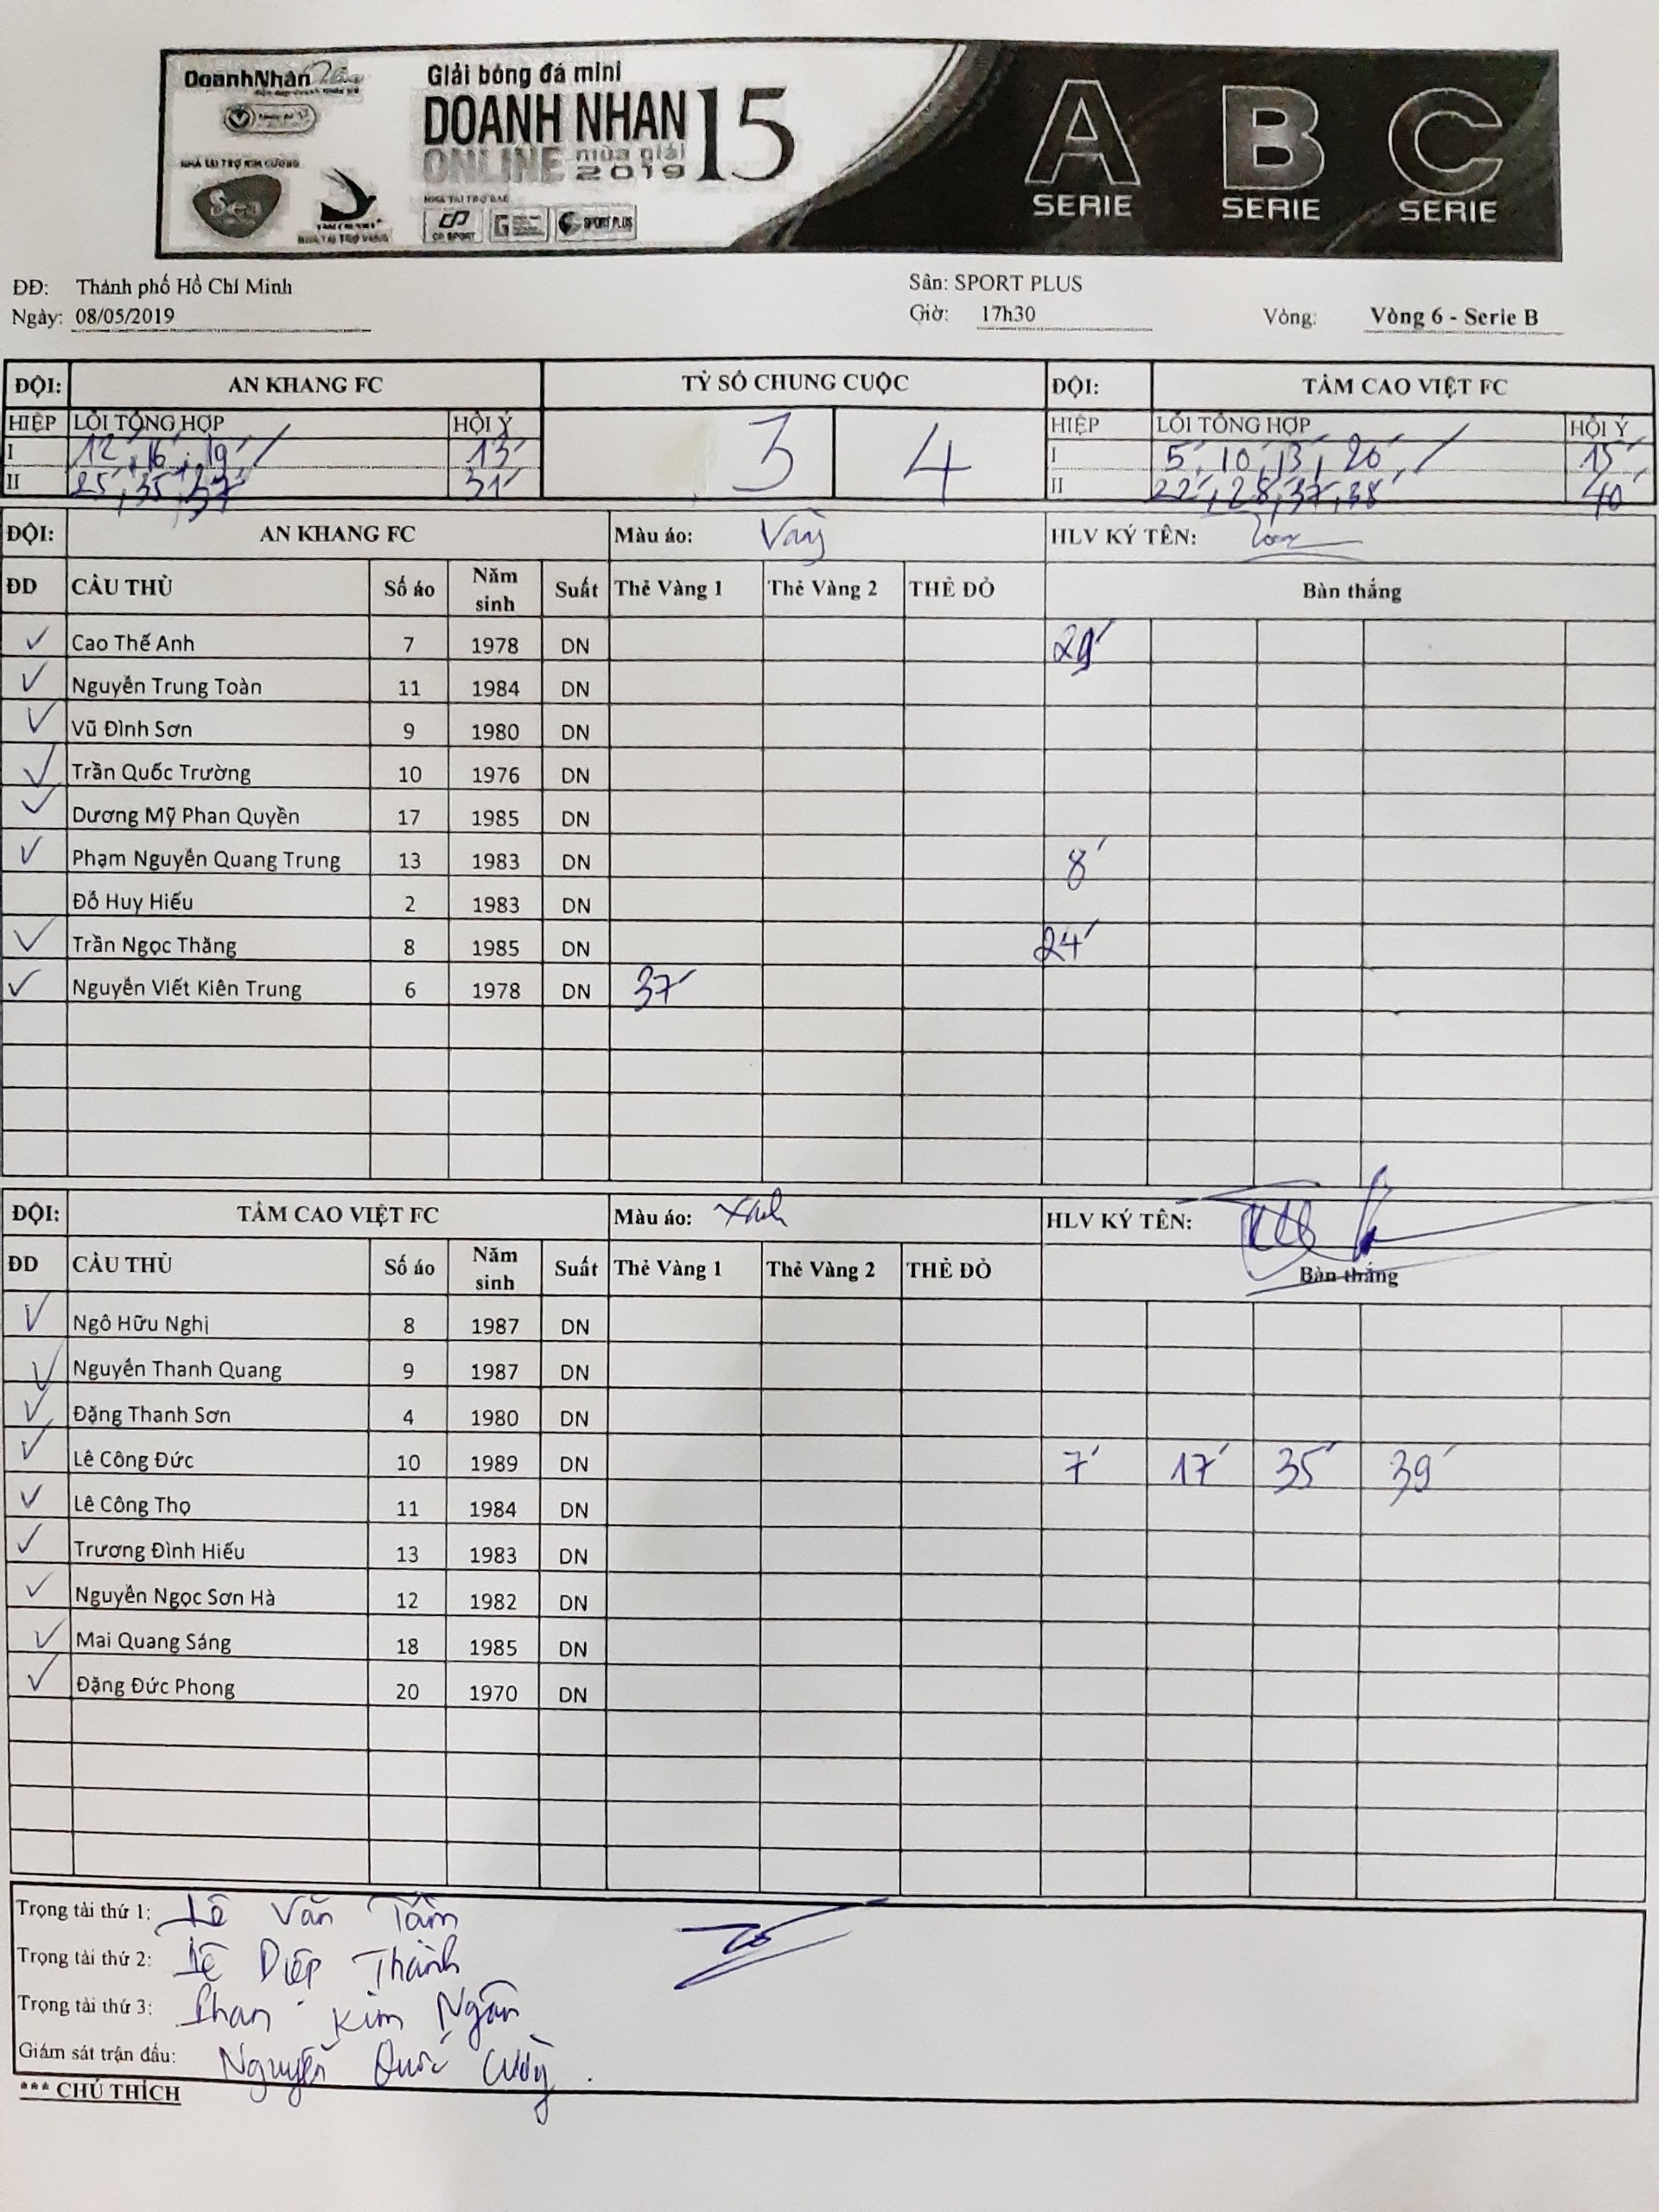 DoanhNhân
Giải bóng đá mini
DOANH NHAN 15
ONLINE mùa giải
2019
NHÀ TÀI TRỢ KIM CƯƠNG
NHÀ TÀI TRỢ BẠC
NHÀ TÀI TRỢ VÀNG
CP SPORT
SPORT PLUS
A SERIE B SERIE C SERIE
ĐĐ: Thành phố Hồ Chí Minh Sân: SPORT PLUS
Ngày: 08/05/2019 Giờ: 17h30 Vòng: Vòng 6 - Serie B
ĐỘI: AN KHANG FC TỶ SỐ CHUNG CUỘC ĐỘI: TẦM CAO VIỆT FC
HIỆP LỖI TỔNG HỢP HỘI Ý 3 4 HIỆP LỖI TỔNG HỢP HỘI Ý
I 12', 16', 19' / 13' I 5', 10', 13', 20', / 15'
II 25', 35', 37' 31' II 22', 28', 37', 38' 40'
ĐỘI: AN KHANG FC Màu áo: Vàng HLV KÝ TÊN:
ĐD CẦU THỦ Số áo Năm sinh Suất Thẻ Vàng 1 Thẻ Vàng 2 THẺ ĐỎ Bàn thắng
Cao Thế Anh 7 1978 DN 29'
Nguyễn Trung Toàn 11 1984 DN
Vũ Đình Sơn 9 1980 DN
Trần Quốc Trường 10 1976 DN
Dương Mỹ Phan Quyền 17 1985 DN
Phạm Nguyễn Quang Trung 13 1983 DN 8'
Đỗ Huy Hiếu 2 1983 DN
Trần Ngọc Thăng 8 1985 DN 24'
Nguyễn Viết Kiên Trung 6 1978 DN 37'
ĐỘI: TẦM CAO VIỆT FC Màu áo: Xanh HLV KÝ TÊN:
ĐD CẦU THỦ Số áo Năm sinh Suất Thẻ Vàng 1 Thẻ Vàng 2 THẺ ĐỎ Bàn thắng
Ngô Hữu Nghị 8 1987 DN
Nguyễn Thanh Quang 9 1987 DN
Đặng Thanh Sơn 4 1980 DN
Lê Công Đức 10 1989 DN 7' 17' 35' 39'
Lê Công Thọ 11 1984 DN
Trương Đình Hiếu 13 1983 DN
Nguyễn Ngọc Sơn Hà 12 1982 DN
Mai Quang Sáng 18 1985 DN
Đặng Đức Phong 20 1970 DN
Trọng tài thứ 1: Lê Văn Tâm
Trọng tài thứ 2: Lê Diệp Thành
Trọng tài thứ 3: Phan Kim Ngân
Giám sát trận đấu: Nguyễn Quốc Cường.
*** CHÚ THÍCH